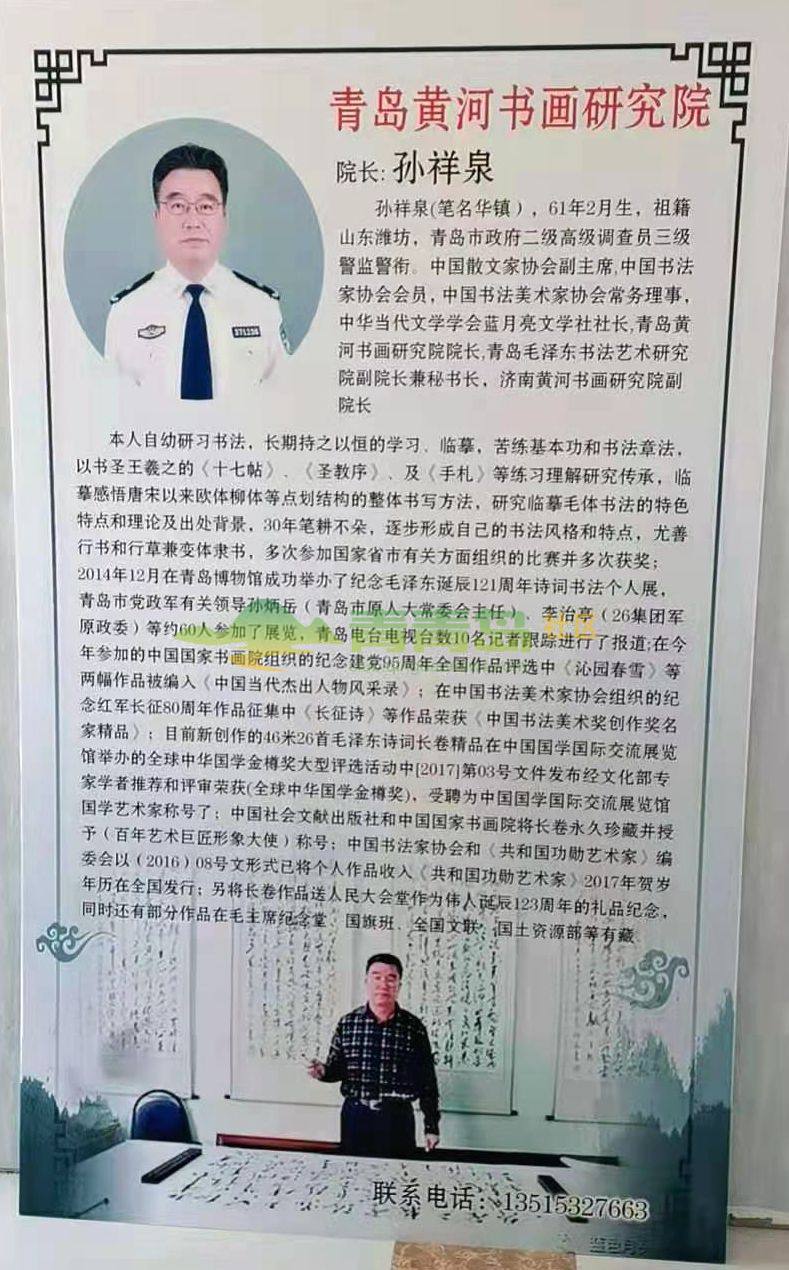 青岛黄河书画研究院
院长: 孙祥泉
孙祥泉(笔名华镇），61年2月生，祖籍
山东潍坊，青岛市政府二级高级调查员三级
警监警衔。中国散文家协会副主席,中国书法
家协会会员，中国书法美术家协会常务理事，
中华当代文学学会蓝月亮文学社社长,青岛黄
河书画研究院院长,青岛毛泽东书法艺术研究
院副院长兼秘书长，济南黄河书画研究院副
院长
本人自幼研习书法，长期持之以恒的学习、临摹，苦练基本功和书法章法，
以书圣王羲之的《十七帖》、《圣教序》、及《手札》等练习理解研究传承，临
摹感悟唐宋以来欧体柳体等点划结构的整体书写方法，研究临摹毛体书法的特色
特点和理论及出处背景，30年笔耕不朵，逐步形成自己的书法风格和特点，尤善
行书和行草兼变体隶书，多次参加国家省市有关方面组织的比赛并多次获奖；
2014年12月在青岛博物馆成功举办了纪念毛泽东诞辰121周年诗词书法个人展，
青岛市党政军有关领导孙炳岳（青岛市原人大常委会主任）、李治亮（26集团军
原政委）等约60人参加了展览，青岛电台电视台数10名记者跟踪进行了报道;在今
年参加的中国国家书画院组织的纪念建党95周年全国作品评选中《沁园春雪》等
两幅作品被编入《中国当代杰出人物风采录》；在中国书法美术家协会组织的纪
念红军长征80周年作品征集中《长征诗》等作品荣获《中国书法美术奖创作奖名
家精品》；目前新创作的46米26首毛泽东诗词长卷精品在中国国学国际交流展览
馆举办的全球中华国学金樽奖大型评选活动中[2017]第03号文件发布经文化部专
家学者推荐和评审荣获(全球中华国学金樽奖)，受聘为中国国学国际交流展览馆
国学艺术家称号了；中国社会文献出版社和中国国家书画院将长卷永久珍藏并授
予（百年艺术巨匠形象大使）称号；中国书法家协会和《共和国功勋艺术家》编
委会以（2016）08号文形式已将个人作品收入《共和国功勋艺术家》2017年贺岁
年历在全国发行；另将长卷作品送人民大会堂作为伟人诞辰123周年的礼品纪念，
同时还有部分作品在毛主席纪念堂、国旗班、全国文联、国土资源部等有藏
联系电话：13515327663